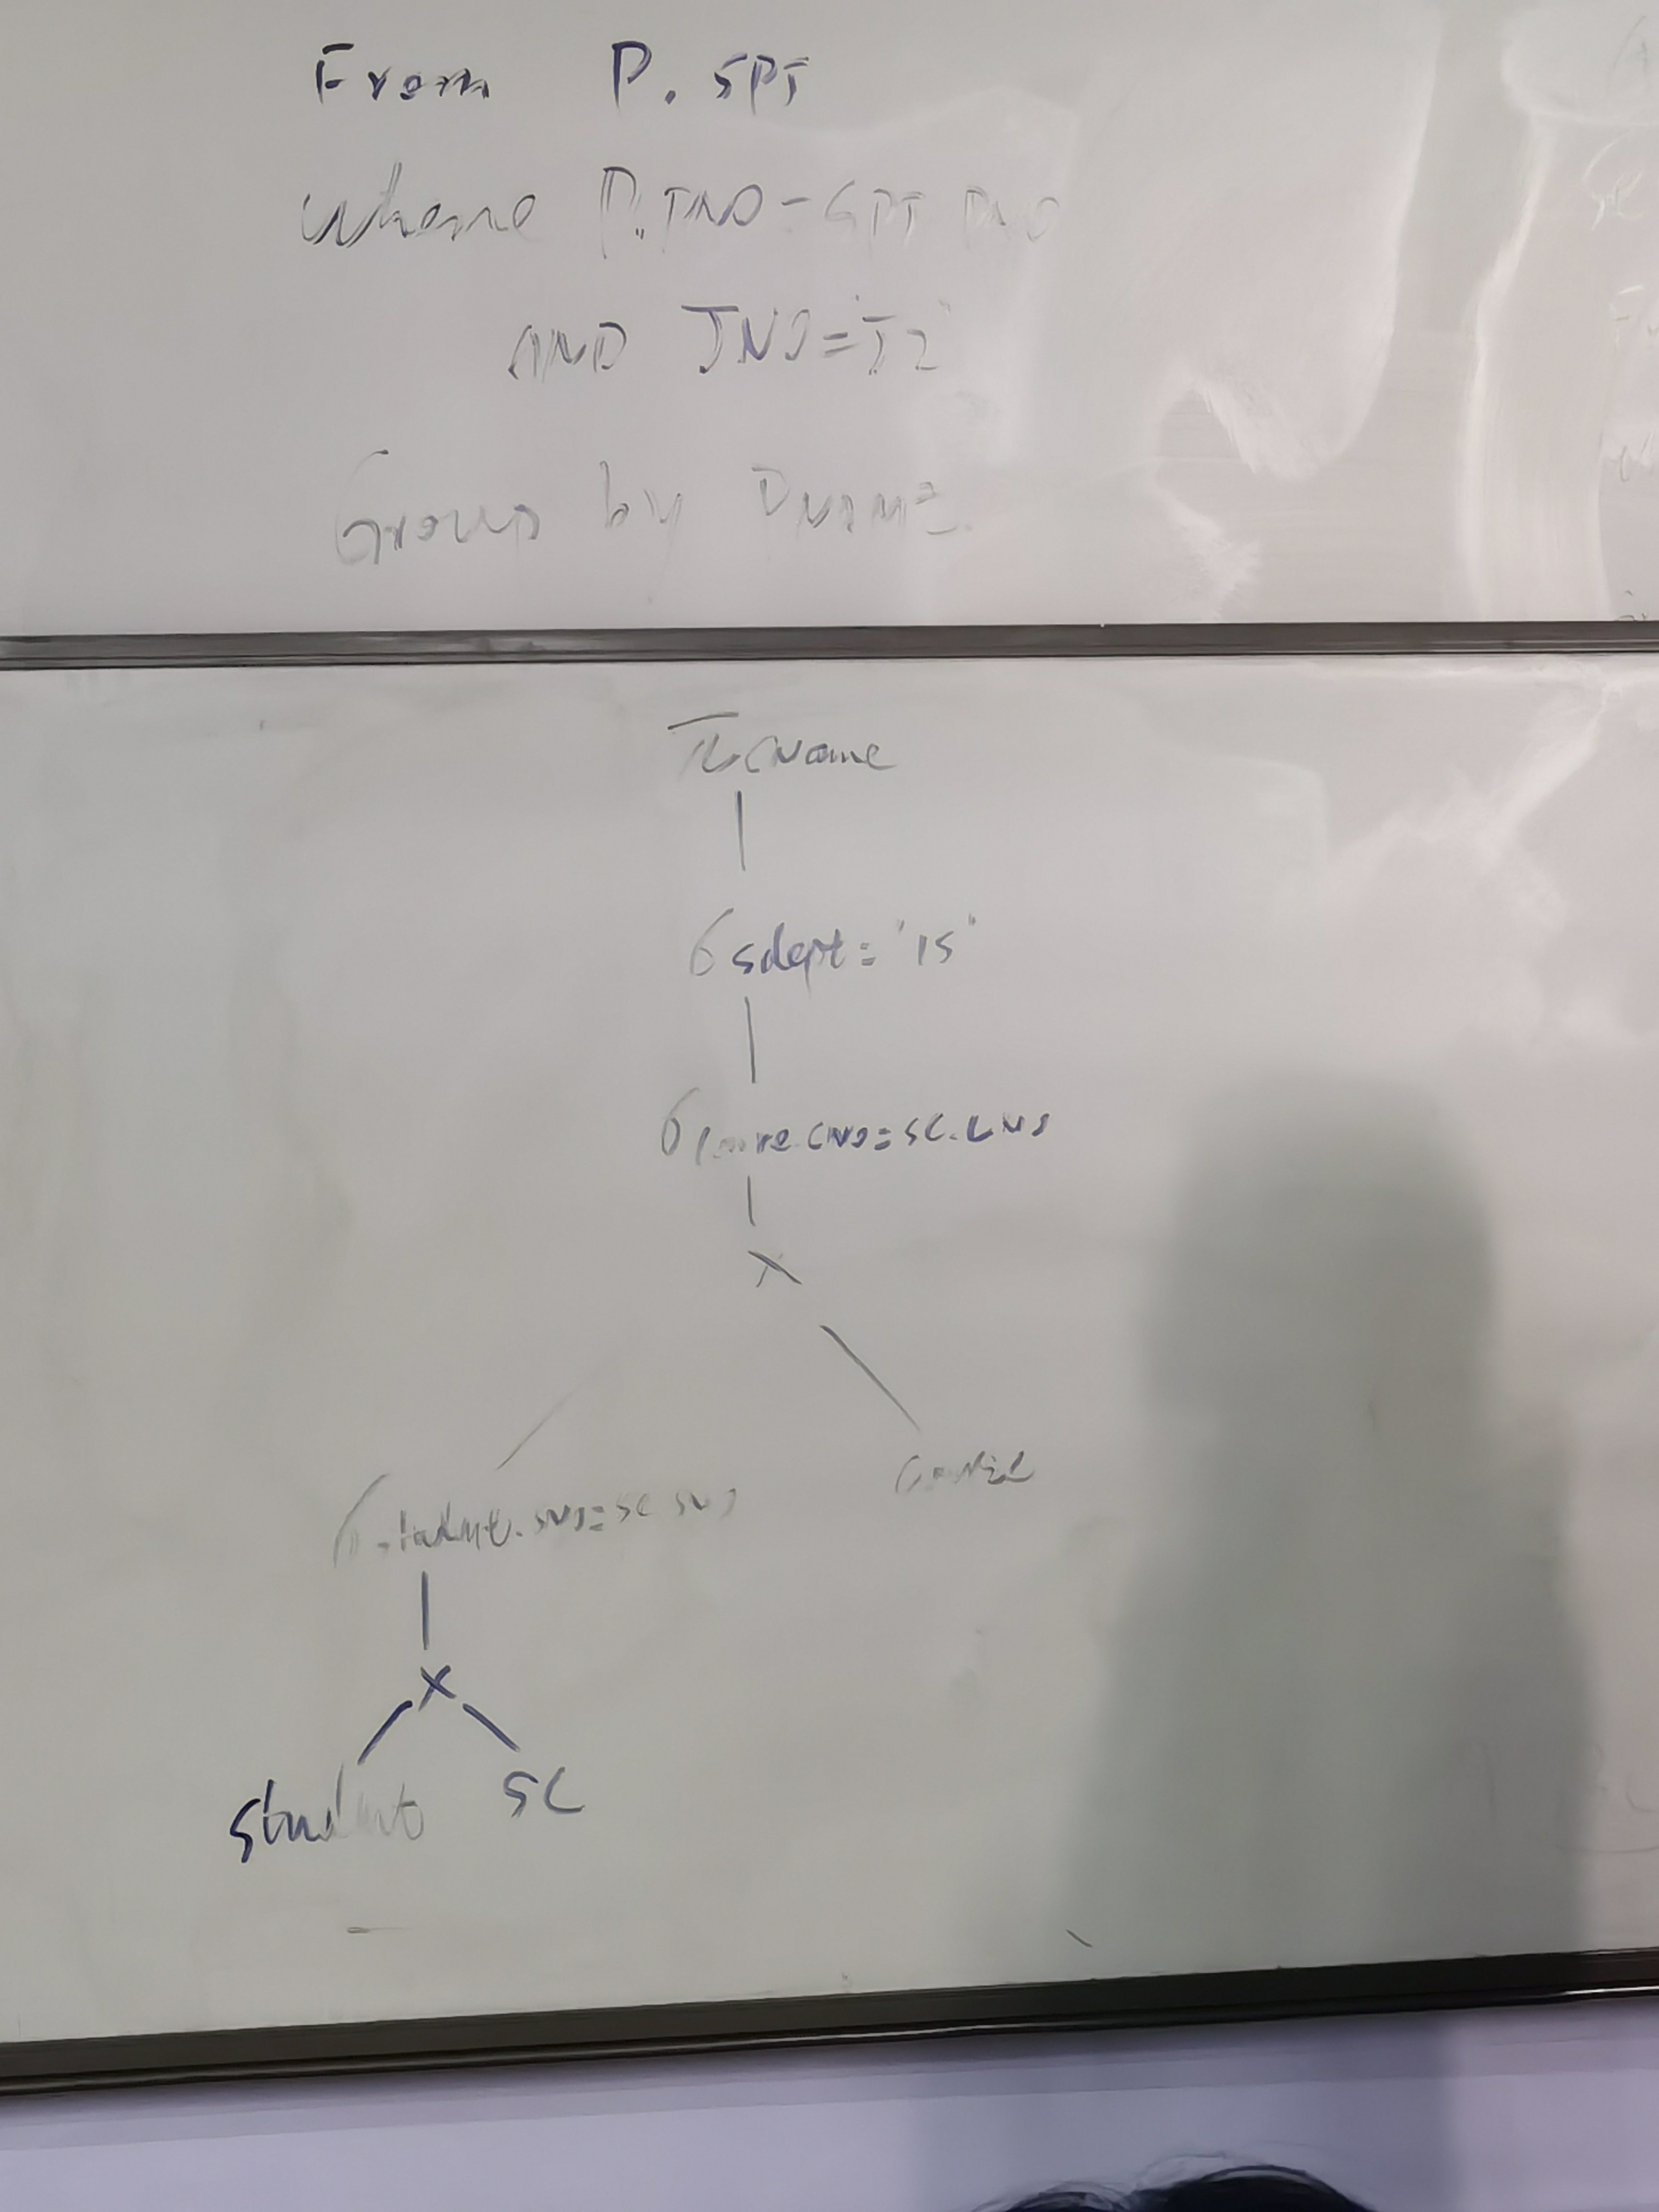 From P. SPJ
where P.PNO = SPJ PNO
AND JNO='J2'
Group by PNAME
π cname
σ sdept = "IS"
σ course.cno=SC.cno
×
σ student.sno=SC sno
course
×
student SC